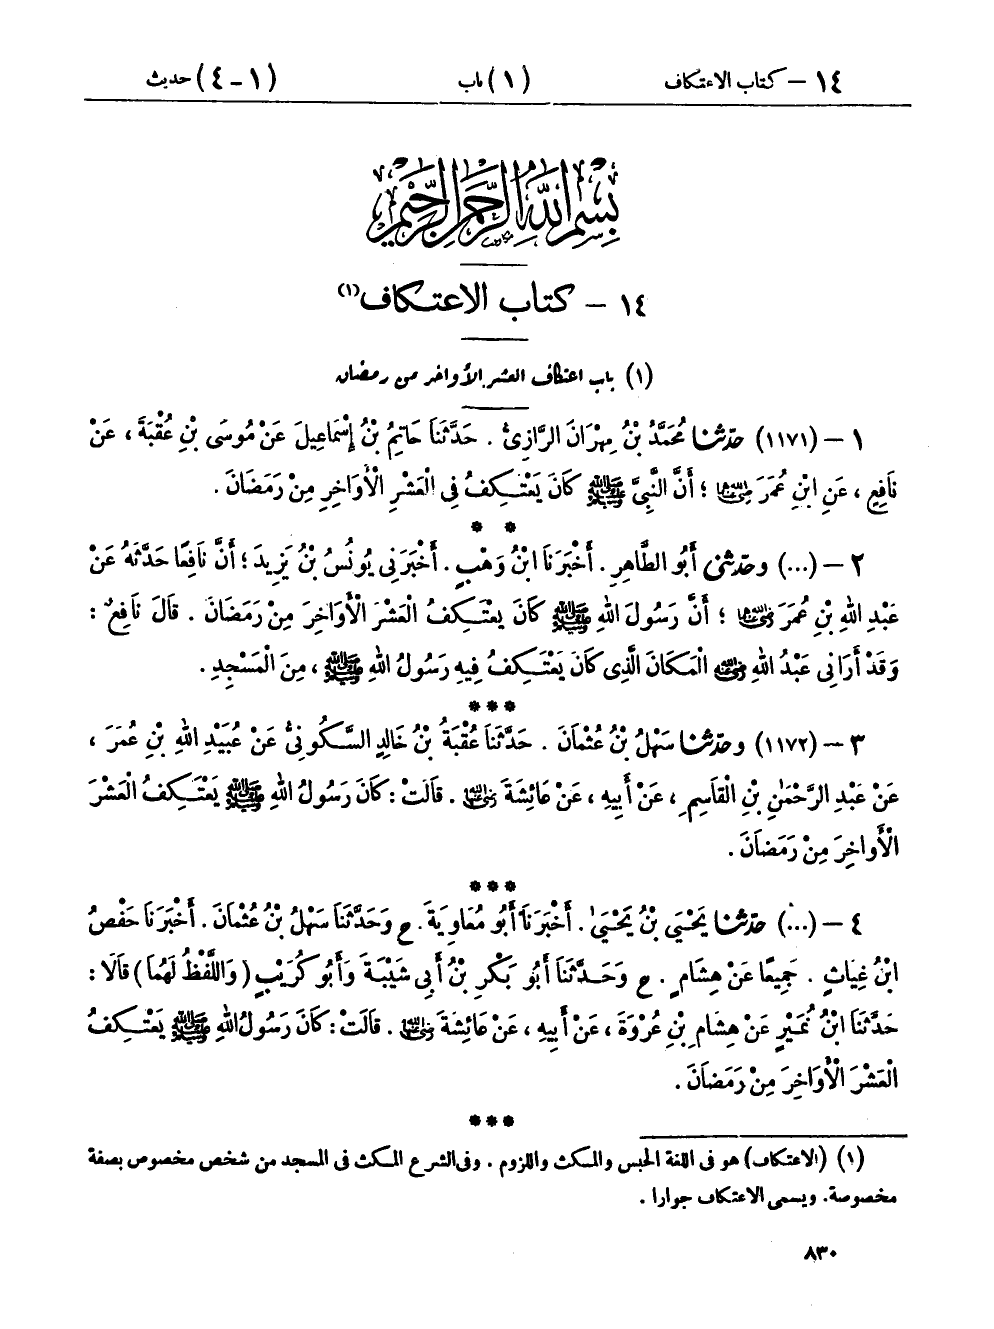 ١٤ – كتاب الاعتكاف (١) باب (١ – ٤) حديث
بِسْمِ اللَّهِ الرَّحْمَنِ الرَّحِيمِ
١٤ – كتاب الاعتكاف(١)
(١) باب اعتكاف العشر الأواخر من رمضان
١ – (١١٧١) حدّثنا مُحَمَّدُ بْنُ مِهْرَانَ الرَّازِيُّ . حَدَّثَنَا حَاتِمُ بْنُ إِسْمَاعِيلَ عَنْ مُوسَى بْنِ عُقْبَةَ ، عَنْ
نَافِعٍ ، عَنِ ابْنِ عُمَرَ رضي الله عنهما ؛ أَنَّ النَّبِيَّ ﷺ كَانَ يَعْتَكِفُ فِي الْعَشْرِ الْأَوَاخِرِ مِنْ رَمَضَانَ .
* *
٢ – (...) وحدّثني أَبُو الطَّاهِرِ . أَخْبَرَنَا ابْنُ وَهْبٍ . أَخْبَرَنِي يُونُسُ بْنُ يَزِيدَ ؛ أَنَّ نَافِعًا حَدَّثَهُ عَنْ
عَبْدِ اللهِ بْنِ عُمَرَ رضي الله عنهما ؛ أَنَّ رَسُولَ اللهِ ﷺ كَانَ يَعْتَكِفُ الْعَشْرَ الْأَوَاخِرَ مِنْ رَمَضَانَ . قَالَ نَافِعٌ :
وَقَدْ أَرَانِي عَبْدُ اللهِ رضي الله عنه الْمَكَانَ الَّذِي كَانَ يَعْتَكِفُ فِيهِ رَسُولُ اللهِ ﷺ ، مِنَ الْمَسْجِدِ .
* * *
٣ – (١١٧٢) وحدّثنا سَهْلُ بْنُ عُثْمَانَ . حَدَّثَنَا عُقْبَةُ بْنُ خَالِدٍ السَّكُونِيُّ عَنْ عُبَيْدِ اللهِ بْنِ عُمَرَ ،
عَنْ عَبْدِ الرَّحْمَٰنِ بْنِ الْقَاسِمِ ، عَنْ أَبِيهِ ، عَنْ عَائِشَةَ رضي الله عنها . قَالَتْ : كَانَ رَسُولُ اللهِ ﷺ يَعْتَكِفُ الْعَشْرَ
الْأَوَاخِرَ مِنْ رَمَضَانَ .
* * *
٤ – (...) حدّثنا يَحْيَىٰ بْنُ يَحْيَىٰ . أَخْبَرَنَا أَبُو مُعَاوِيَةَ . ح وَحَدَّثَنَا سَهْلُ بْنُ عُثْمَانَ . أَخْبَرَنَا حَفْصُ
ابْنُ غِيَاثٍ . جَمِيعًا عَنْ هِشَامٍ . ح وَحَدَّثَنَا أَبُو بَكْرِ بْنُ أَبِي شَيْبَةَ وَأَبُو كُرَيْبٍ (وَاللَّفْظُ لَهُمَا) قَالَا :
حَدَّثَنَا ابْنُ نُمَيْرٍ عَنْ هِشَامِ بْنِ عُرْوَةَ ، عَنْ أَبِيهِ ، عَنْ عَائِشَةَ رضي الله عنها . قَالَتْ : كَانَ رَسُولُ اللهِ ﷺ يَعْتَكِفُ
الْعَشْرَ الْأَوَاخِرَ مِنْ رَمَضَانَ .
* * *
(١) (الاعتكاف) هو فى اللغة الحبس والمكث واللزوم . وفى الشرع المكث فى المسجد من شخص مخصوص بصفة
مخصوصة. ويسمى الاعتكاف جوارا .
٨٣٠